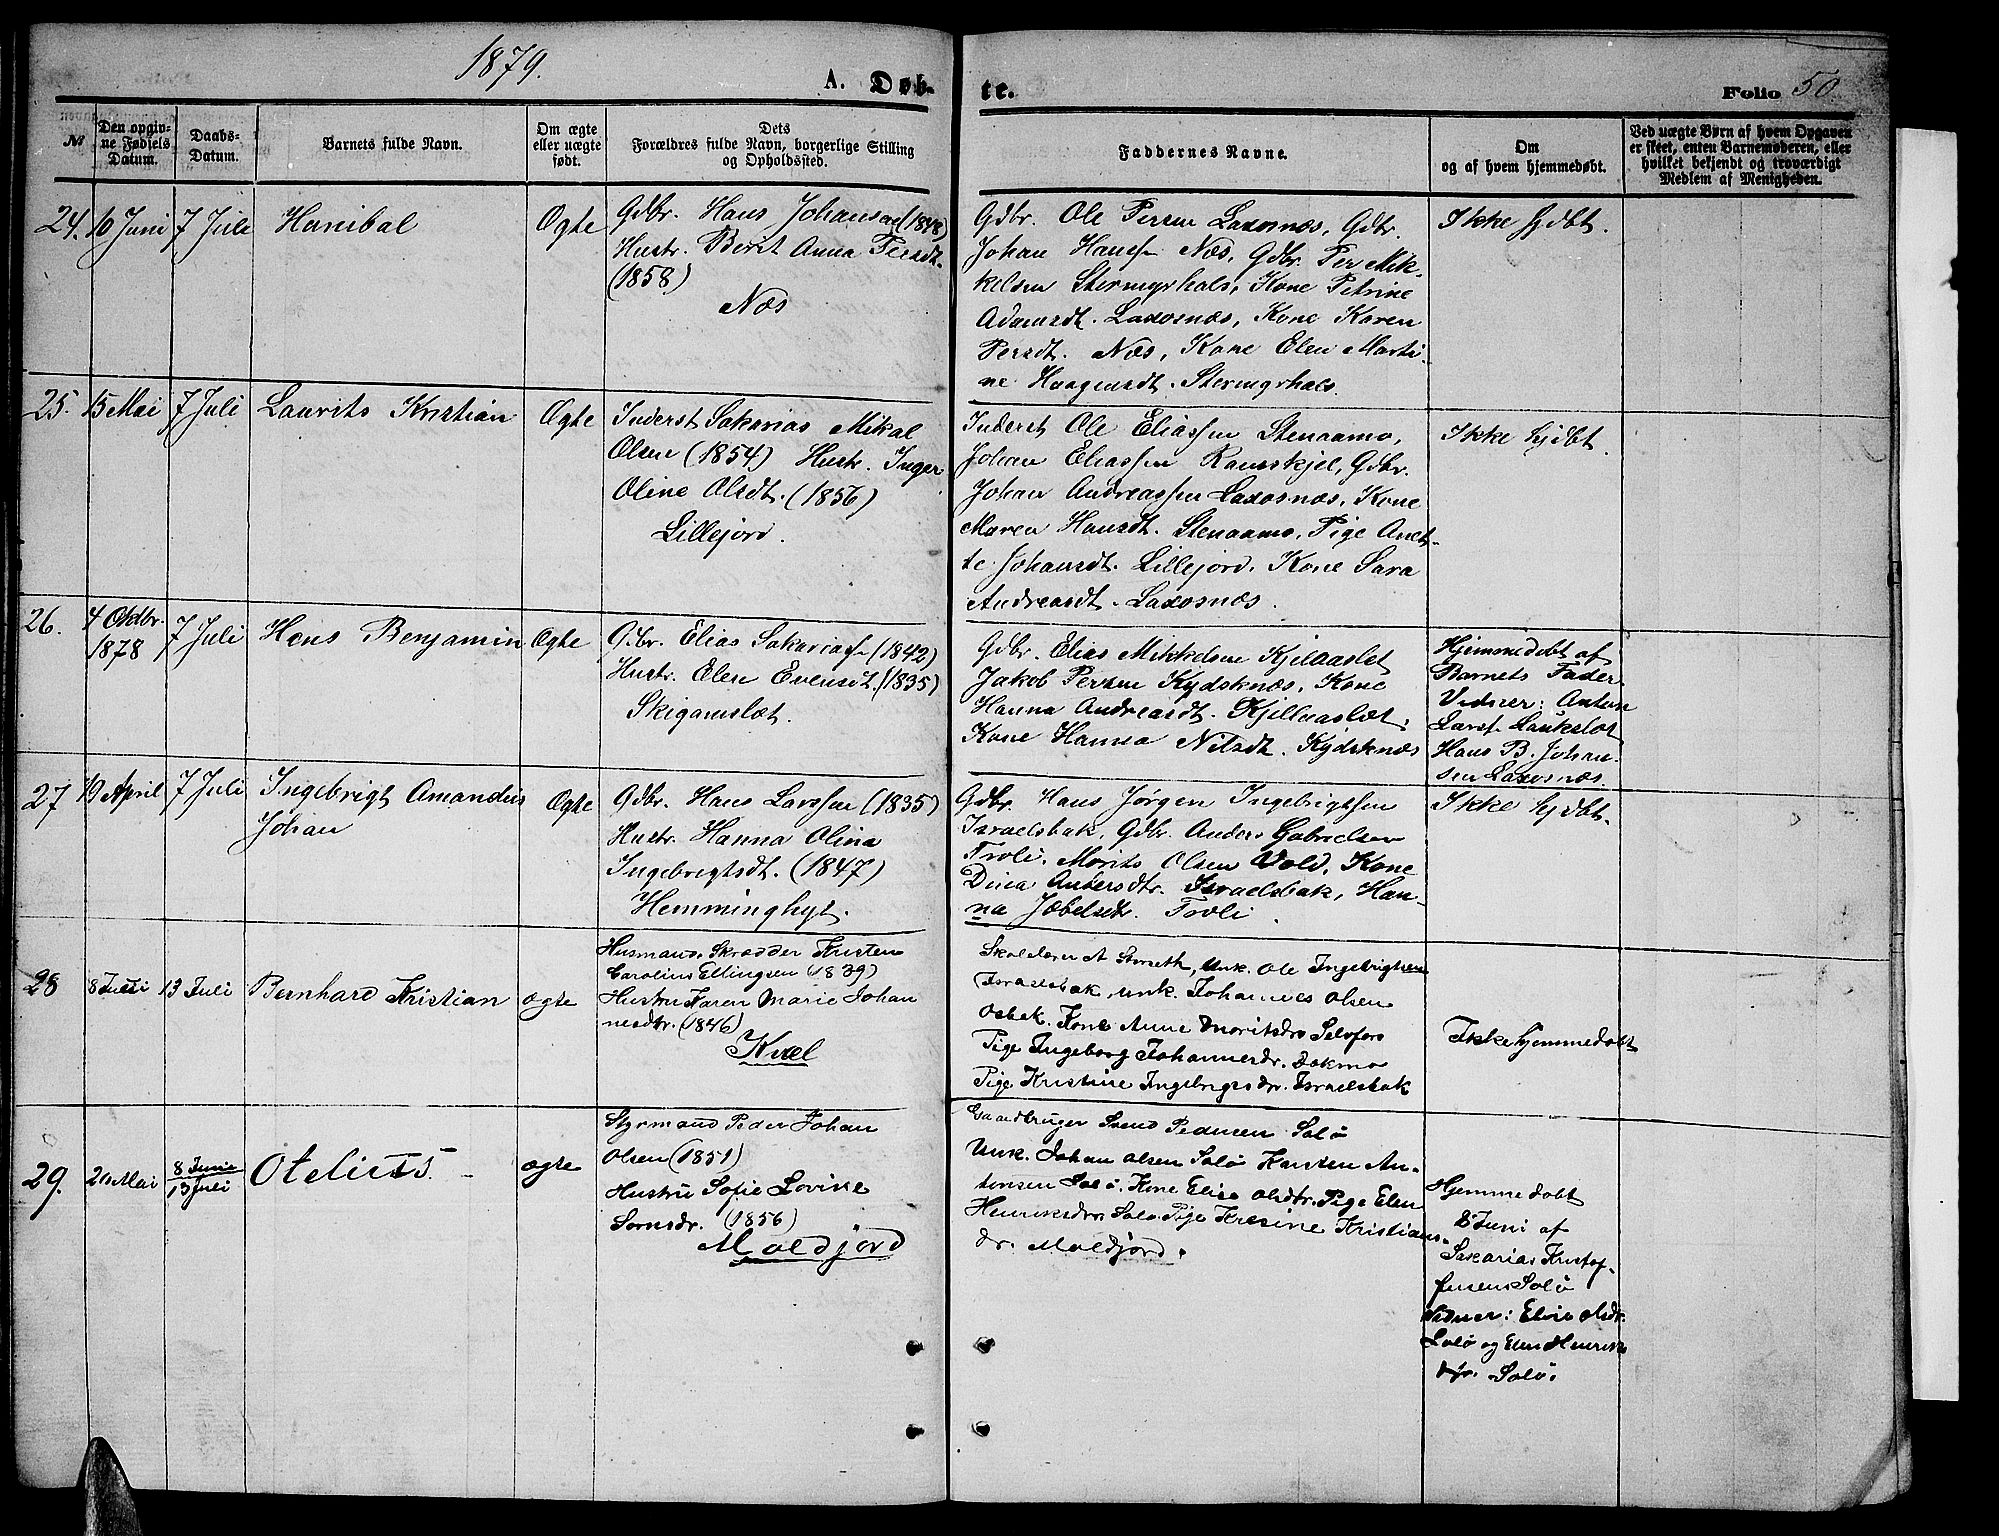 1879.
A. Døb-
te.
Folio 50.
№
Den opgiv-
ne Fødsels
Datum.
Daabs-
Datum.
Barnets fulde Navn.
Om ægte
eller uægte
født.
Dets
Forældres fulde Navn, borgerlige Stilling
og Opholdssted.
Faddernes Navne.
Om
og af hvem hjemmedøbt.
Ved uægte Børn af hvem Opgaven
er skeet, enten Barnemoderen, eller
hvilket bekjendt og troværdigt
Medlem af Menigheden.
24. 10 Juni 7 Juli Hanibal Ægte
Gdbr. Hans Johansen (1848)
Hustr. Berit Anna Persdt.
(1858)
Næs
Gdbr. Ole Persen Laxosnæs, Gdbr.
Johan Hansen Næs, Gdbr. Per Mik-
kelsen Stormyrhals, Kone Petrine
Adamsdt. Laxosnæs, Kone Karen
Persdt. Næs, Kone Elen Marti-
ne Haagensdt. Stormyrhals.
Ikke hjdbt.
25. 15 Mai 7 Juli Laurits Kristian Ægte
Inderst Sakarias Mikal
Olsen (1854) Hustr. Inger
Oline Olsdt. (1856)
Lillejord.
Inderst Ole Eliassen Stenaamo,
Johan Eliassen Ramskjel, Gdbr.
Johan Andreassen Laxosnæs, Kone
Maren Hansdt. Stenaamo, Pige Anet-
te Johansdt. Lillejord, Kone Sara
Andreasdt. Laxosnæs.
Ikke hjdbt.
26. 4 Oktbr.
1878 7 Juli Hans Benjamin Ægte
Gdbr. Elias Sakarias. (1842)
Hustr. Elen Evensdt. (1835)
Skigamslæt.
Gdbr. Elias Mikkelsen Kjilaaslet
Jakob Persen Kydsknæs, Kone
Hanna Andreasdt. Kjillaaslæt,
Kone Hanna Nilsdt. Kydsknæs
Hjemmedøbt af
Barnets Fader.
Vidner: Anton
Larss. Laukslet
Hans B. Johan-
sen Laxosnæs.
27 19 April 7 Juli Ingebrigt Amandus
Johan Ægte
Gdbr. Hans Larssen (1835)
Hustr. Hanna Olina
Ingebrigtsdt. (1847)
Hemminghyt.
Gdbr. Hans Jørgen Ingebrigtsen
Israelsbak, Gdbr. Anders Gabrielsen
Troli, Morits Olsen Vold, Kone
Dina Andersdtr. Israelsbak, Han-
na Jæbelsdtr. Troli.
Ikke hjdbt.
28 8 Juni 13 Juli Bernhard Kristian ægte
Husmand, Skrædder Kristen
Carolius Ellingsen (1839)
Hustru Karen Marie Johan
nesdtr. (1846)
Kvæl
Skolelærer A Storseth, Unk. Ole Ingebrigtsen
Israelsbak, Unk. Johannes Olsen
Osbak. Kone Anne Moritsdr. Selsfors
Pige Ingeborg Johannesdr. Dokmo
Pige Kristine Ingebrigtsdr. Israelsbak
Ikke hjemmedøbt
29. 20 Mai 8 Juni
13 Juli Otelius ægte
Styrmand Peder Johan
Olsen (1851)
Hustru Sofie Lovise
Sørnsdr. (1856)
Moldjord
Gaardbruger Svend Pedersen Solø
Unk. Johan Olsen Solø Karsten An-
tonsen Solø. Kone Elise Olsdtr. Pige Elen
Henriksdr. Solø. Pige Kresine Kristians-
dr. Moldjord.
Hjemmedøbt
8 Juni af
Sakarias Kristof-
fersen Solø
Vidner: Elise Olsdr.
Solø og Elen Henriks
dtr. Solø.